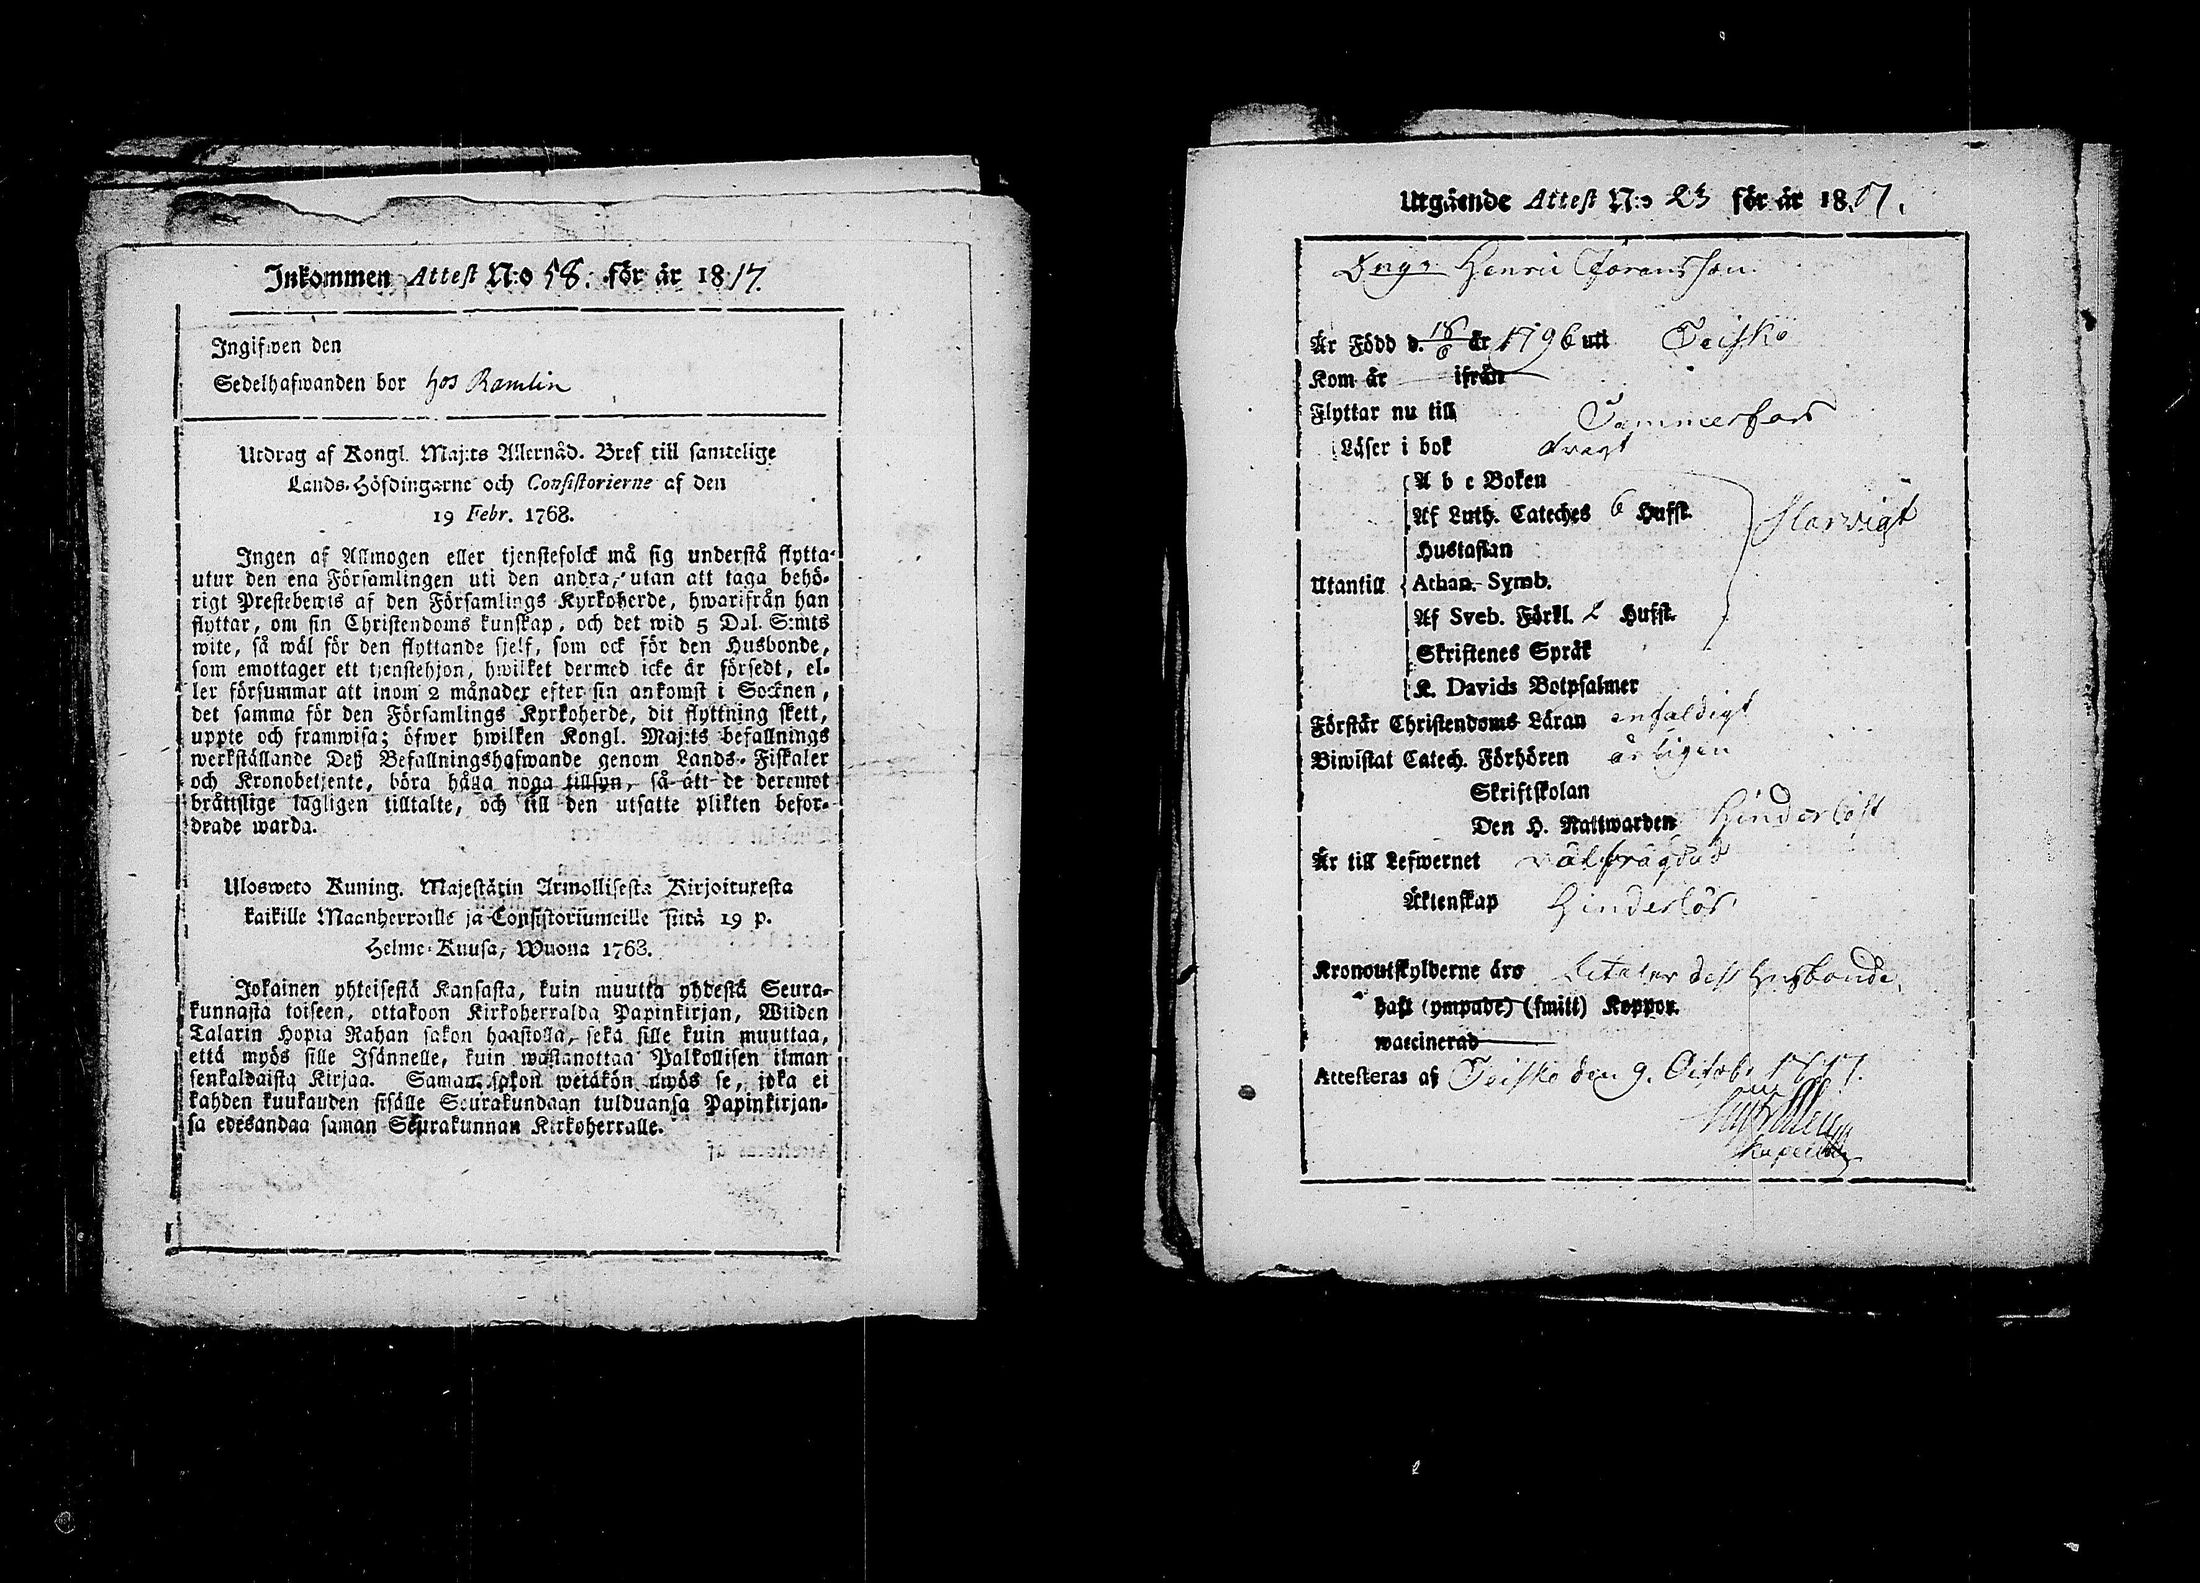 Inkommen Attest N:o 58. för år 1817.
Ingifwen den
Sedelhafwanden bor hos Ramlin
Utdrag af Kongl. Maj:ts Allernåd. Bref till samtelige
Lands-Höfdingarne och Consistorierne af den
19 Febr. 1768.
Ingen af Allmogen eller tjenstefolck må sig understå flytta
utur den ena Församlingen uti den andra, utan att taga behö-
rigt Prestebewis af den Församlings Kyrkoherde, hwarifrån han
flyttar, om sin Christendoms kunskap, och det wid 5 Dal. S:mts
wite, så wäl för den flyttande sjelf, som ock för den Husbonde,
som emottager ett tjenstehjon, hwilket dermed icke är försedt, el-
ler försummar att inom 2 månader efter sin ankomst i Socknen,
det samma för den Församlings Kyrkoherde, dit flyttning skett,
uppte och framwisa; öfwer hwilken Kongl. Maj:ts befallnings
werkställande Deß Befallningshafwande genom Lands-Fiskaler
och Kronobetjente, böra hålla noga tillsyn, så att de deremot
bråttslige lagligen tilltalte, och till den utsatte plikten befor-
drade warda.
Ulosweto Kuning. Majestätin Armollisesta Kirjoituxesta
kaikille Maanherroille ja Consistoriumeille siitä 19 p.
Helme-Kuusa, Wuona 1768.
Jokainen yhteisestä Kansasta, kuin muutta yhdestä Seura-
kunnasta toiseen, ottakoon Kirkoherralda Papinkirjan, Wiiden
Talarin Hopia Rahan sakon haastolla, sekä sille kuin muuttaa,
että myös sille Isännelle, kuin wastanottaa Palkollisen ilman
senkaldaista Kirjaa. Saman sakon wetäkön myös se, joka ei
kahden kuukauden sisälle Seurakundaan tulduansa Papinkirjan-
sa edesandaa saman Seurakunnan Kirkoherralle.
Utgående Attest N:o 23 för år 1817.
Drng. Henric Göransson
Är Född d. 18/6 år 1796 uti Teisko
Kom år ifrån
Flyttar nu till Tammerfors
Läser i bok svagt
A b c Boken
Af Luth. Cateches 6 Hufst.
Hustaflan
Utantill Athan. Symb.
Af Sveb. Förkl. 2 Hufst.
Skriftenes Språk
K. Davids Botpsalmer
Förstår Christendoms Läran enfaldigt
Biwistat Catech. Förhören årligen
Skriftskolan
Den H. Nattwarden Hinderlöst
Är till Lefwernet välfrägdad
Äktenskap Hinderlös
Kronoutskylderne äro betaler dess husbonde,
haft (ympade) (smitt) Koppor.
waccinerad
Attesteras af Teisko den 9. Octobr 1817.